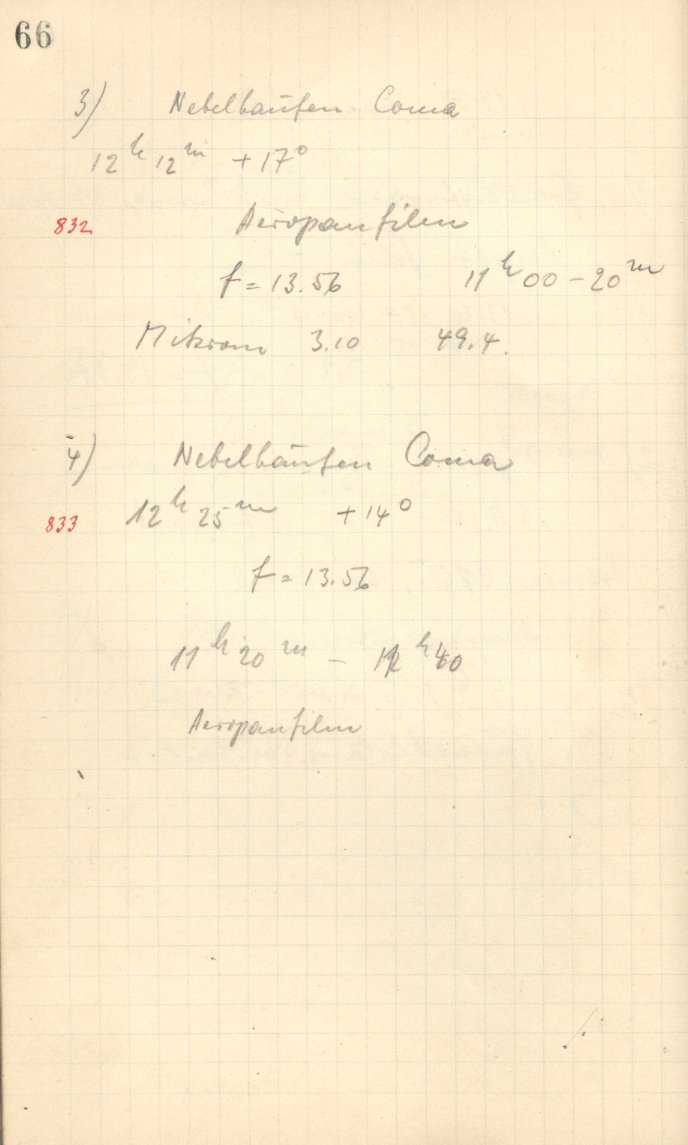 66
3) Nebelhaufen Coma
12h 12m +17°
832 Aeropanfilm
f = 13.56 11h 00 - 20m
Mikrom 3.10 49.4.
4) Nebelhaufen Coma
833 12h 25m +14°
f = 13.56
11h 20m - 11h 40
Aeropanfilm